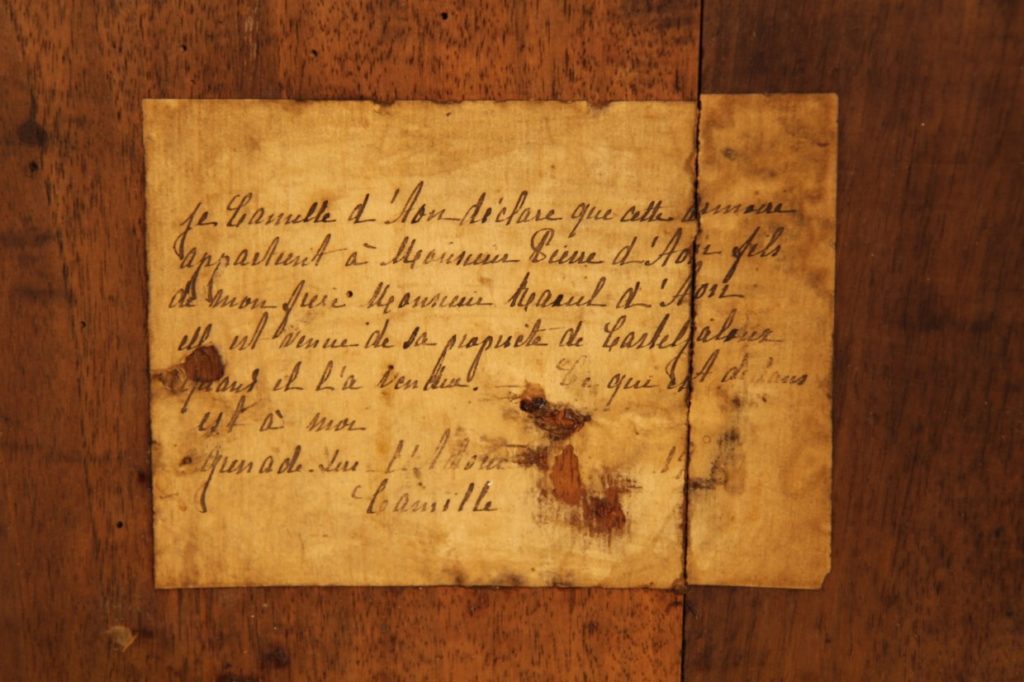 je Camille d'Aon déclare que cette armoire
appartient à Monsieur Pierre d'Aon fils
de mon frère Monsieur Marcel d'Aon
elle est venue de sa propriété de Casteljaloux
quand il l'a vendue. — Ce qui est dedans
est à moi
Grenade-sur-l'Adour
Camille